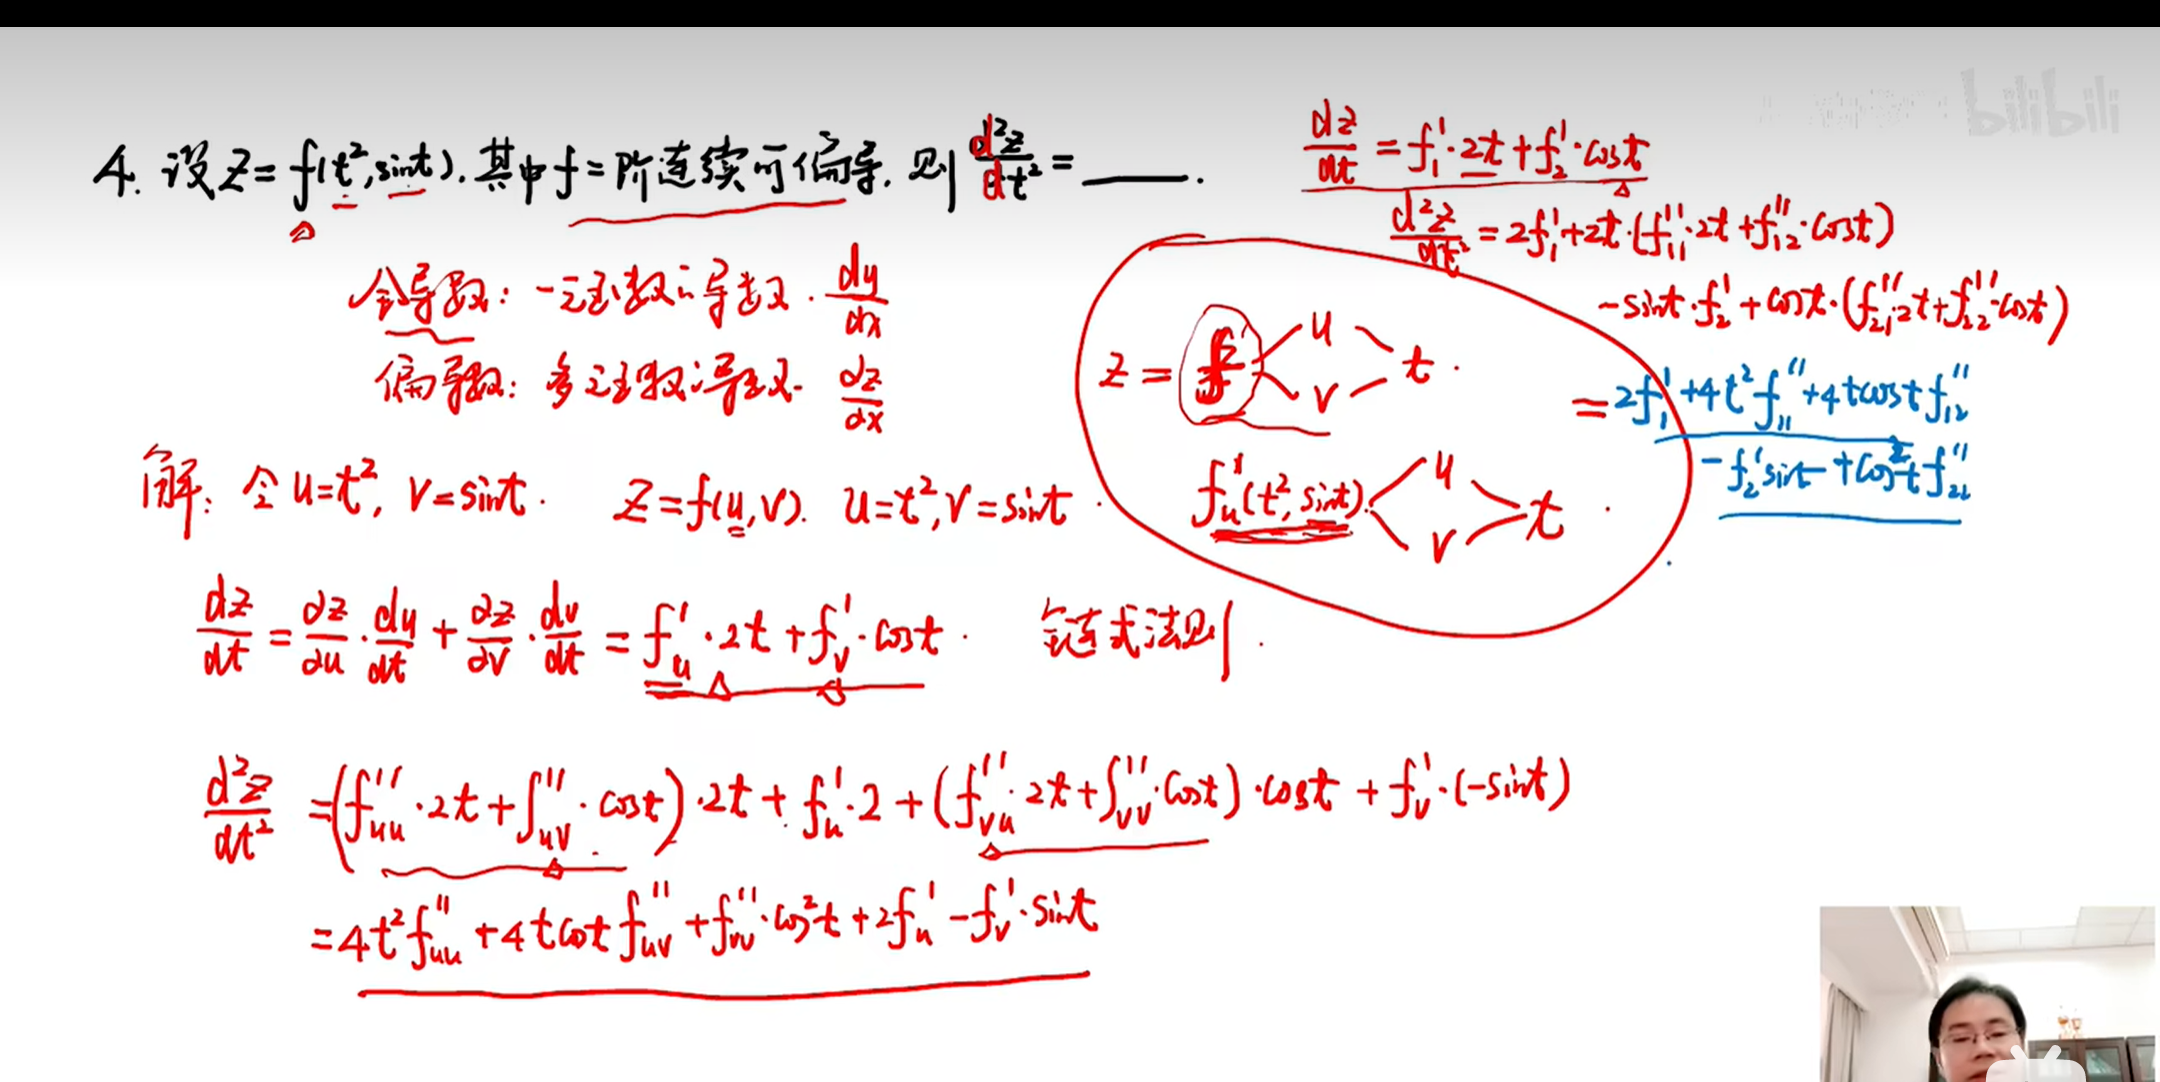 bilibili
4. 设 z = f(t², sint), 其中 f 二阶连续可偏导, 则 d²z/dt² = ____.
全导数: 一元函数之导数. dy/dx
偏导数: 多元函数之导数. ∂z/∂x
解: 令 u=t², v=sint. z=f(u,v). u=t², v=sint.
dz/dt = ∂z/∂u · du/dt + ∂z/∂v · dv/dt = f'u · 2t + f'v · cost. 链式法则.
d²z/dt² = (f''uu · 2t + f''uv · cost) · 2t + f'u · 2 + (f''vu · 2t + f''vv · cost) · cost + f'v · (-sint)
= 4t² f''uu + 4t cost f''uv + f''vv · cos²t + 2f'u - f'v · sint
z = f u v t.
f'u(t², sint). u v t.
dz/dt = f'1 · 2t + f'2 · cost
d²z/dt² = 2f'1 + 2t · (f''11 · 2t + f''12 · cost)
-sint · f'2 + cost · (f''21 · 2t + f''22 · cost)
= 2f'1 + 4t² f''11 + 4t cost f''12
- f'2 sint + cos²t f''22